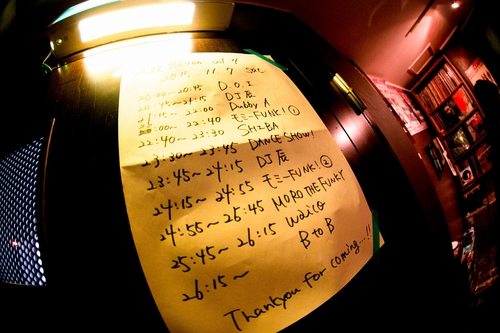 vol.7
2015 11 7 Sat
20:00~20:45 D.O.I
20:45~21:15 DJ辰
21:15~22:00 Dubby A
22:00~22:40 モミーFUNK!①
22:40~23:30 SHIBA
23:30~23:45 DANCE SHOW!
23:45~24:15 DJ辰
24:15~24:55 モミーFUNK!②
24:55~25:45 MORO THE FUNKY
25:45~26:15 waico
26:15~ B to B
Thankyou for coming...!!